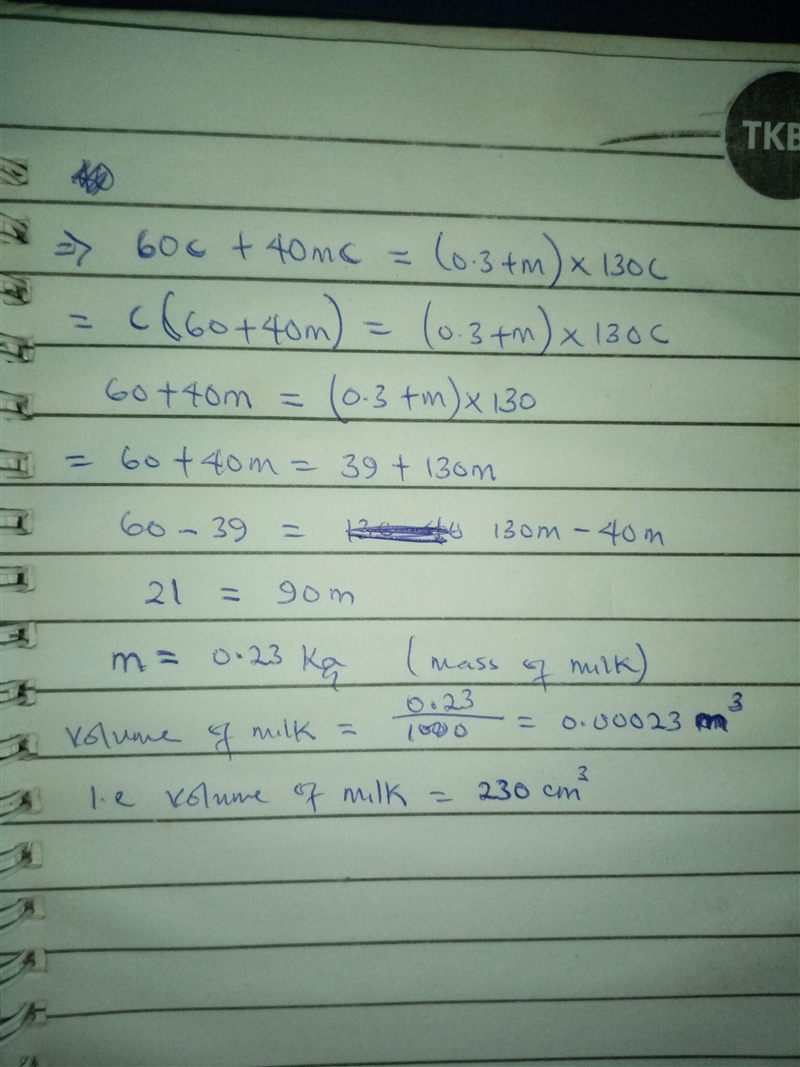 TKB
⇒ 60c + 40mc = (0.3+m)×130c
= c(60+40m) = (0.3+m)×130c
60+40m = (0.3+m)×130
= 60+40m = 39+130m
60-39 = 130m-40m
21 = 90m
m = 0.23 Kg (mass of milk)
volume of milk = 0.23/1000 = 0.00023 m³
I.e volume of milk = 230 cm³